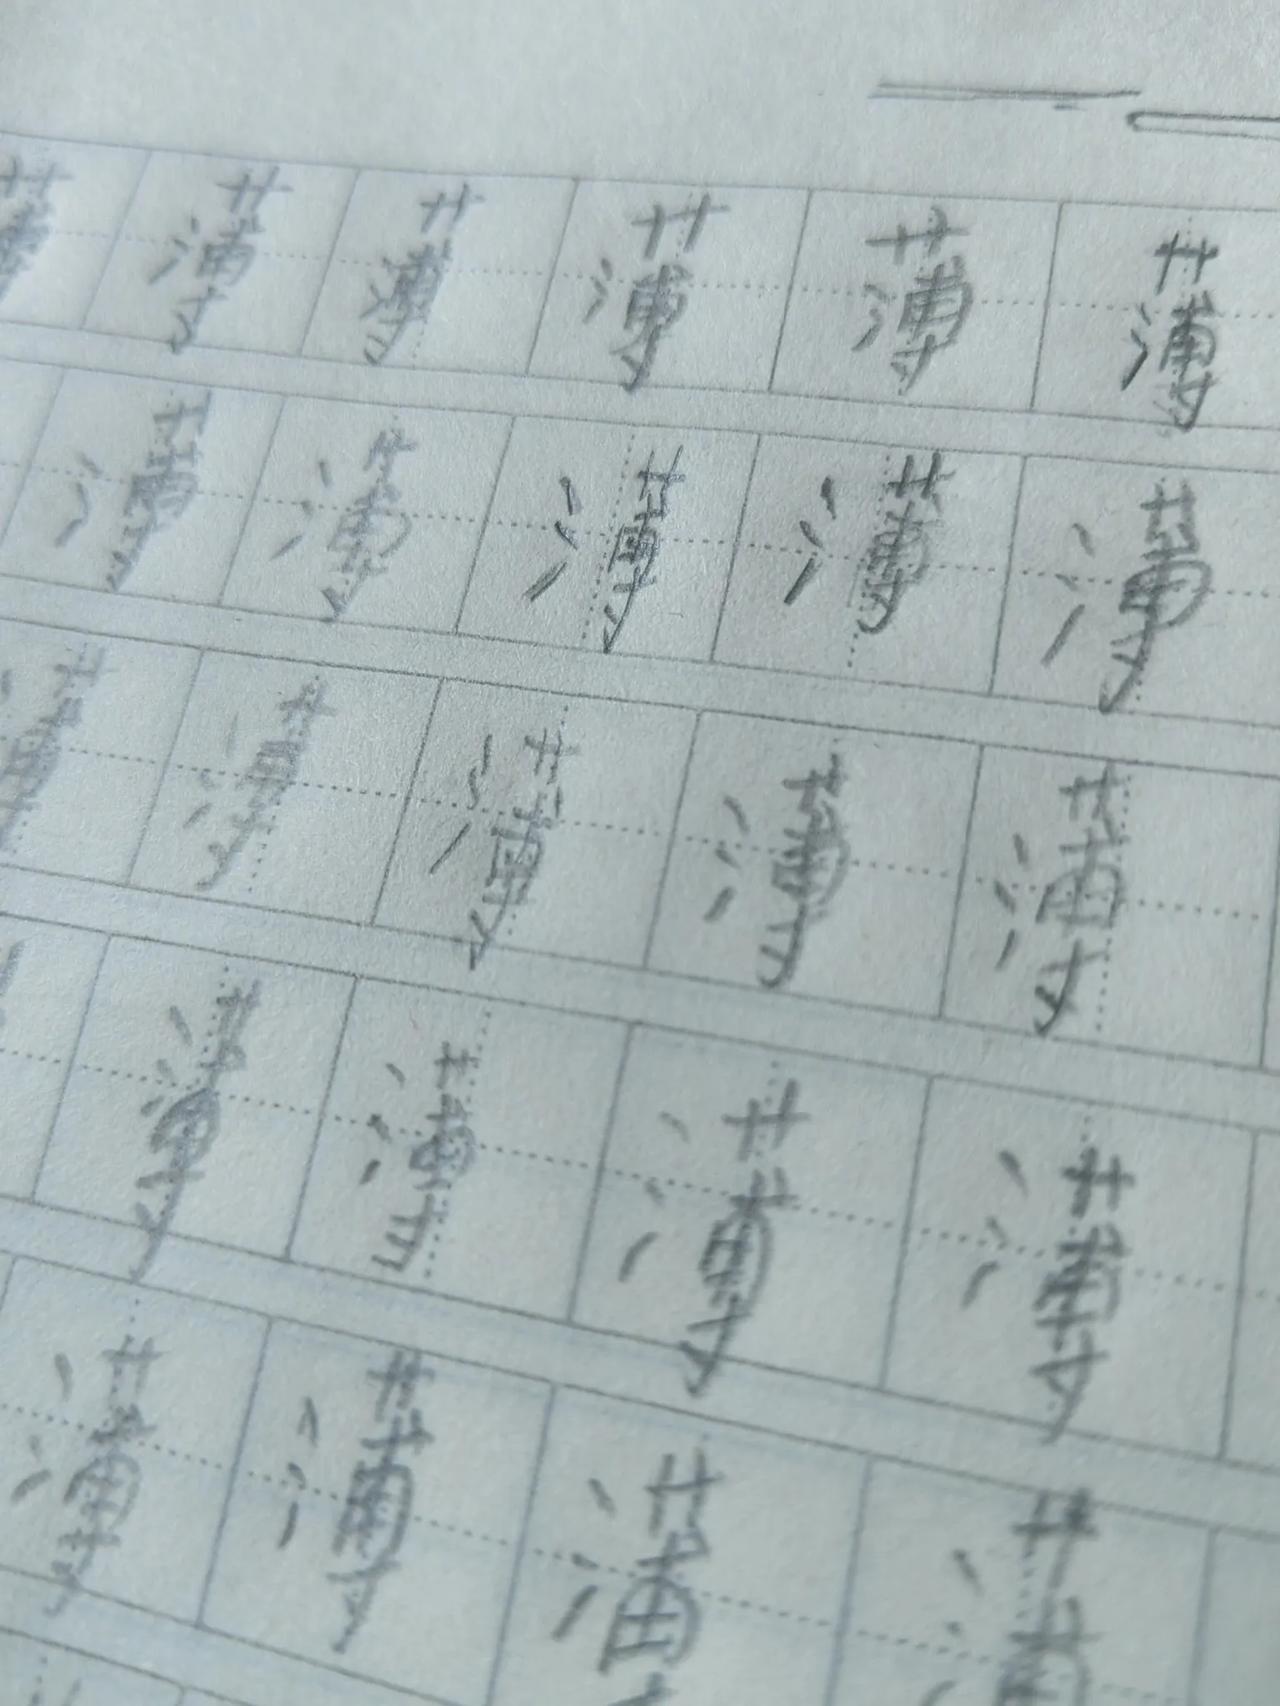 薄 薄 薄 薄 薄 薄
薄 薄 薄 薄 薄
薄 薄 薄 薄 薄
薄 薄 薄 薄
薄 薄 薄 薄